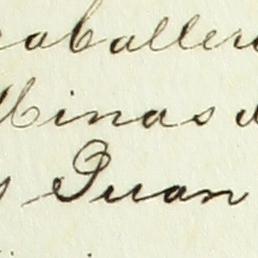 caballero
Minas
y Juan